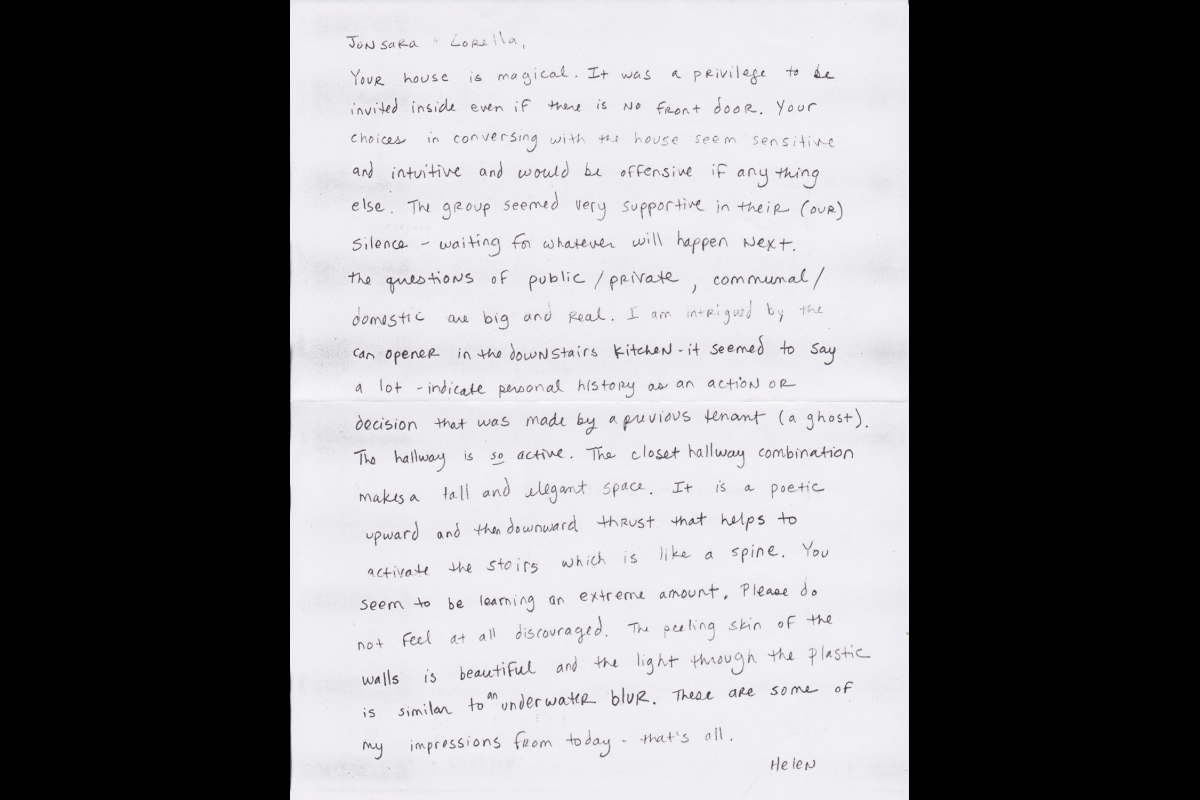 Jonsara + Lorella,
Your house is magical. It was a privilege to be
invited inside even if there is no front door. Your
choices in conversing with the house seem sensitive
and intuitive and would be offensive if any thing
else. The group seemed very supportive in their (our)
silence - waiting for whatever will happen next.
The questions of public / private, communal /
domestic are big and real. I am intrigued by the
can opener in the downstairs kitchen - it seemed to say
a lot - indicate personal history as an action or
decision that was made by a previous tenant (a ghost).
The hallway is so active. The closet hallway combination
makes a tall and elegant space. It is a poetic
upward and then downward thrust that helps to
activate the stairs which is like a spine. You
seem to be learning an extreme amount. Please do
not feel at all discouraged. The peeling skin of the
walls is beautiful and the light through the plastic
is similar to an underwater blur. These are some of
my impressions from today - that's all.
Helen